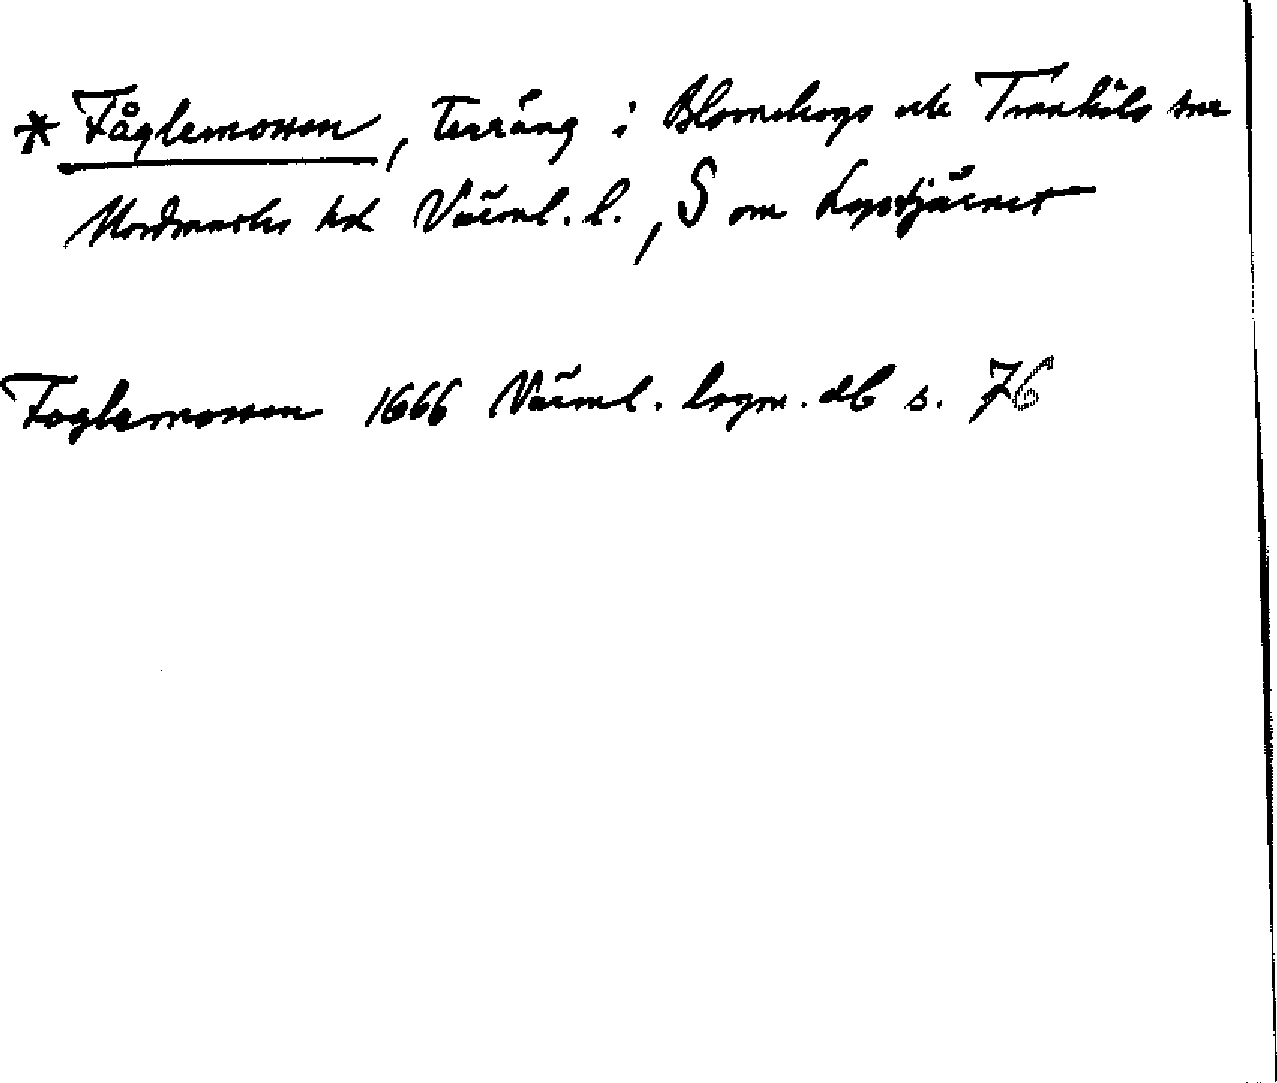 * Fåglemossen, terräng i Blomskogs och Trankils snr
Nordmarks hd Värml. l., S om Lopptjärnet
Foglemossen 1666 Värml. lagm. db s. 76